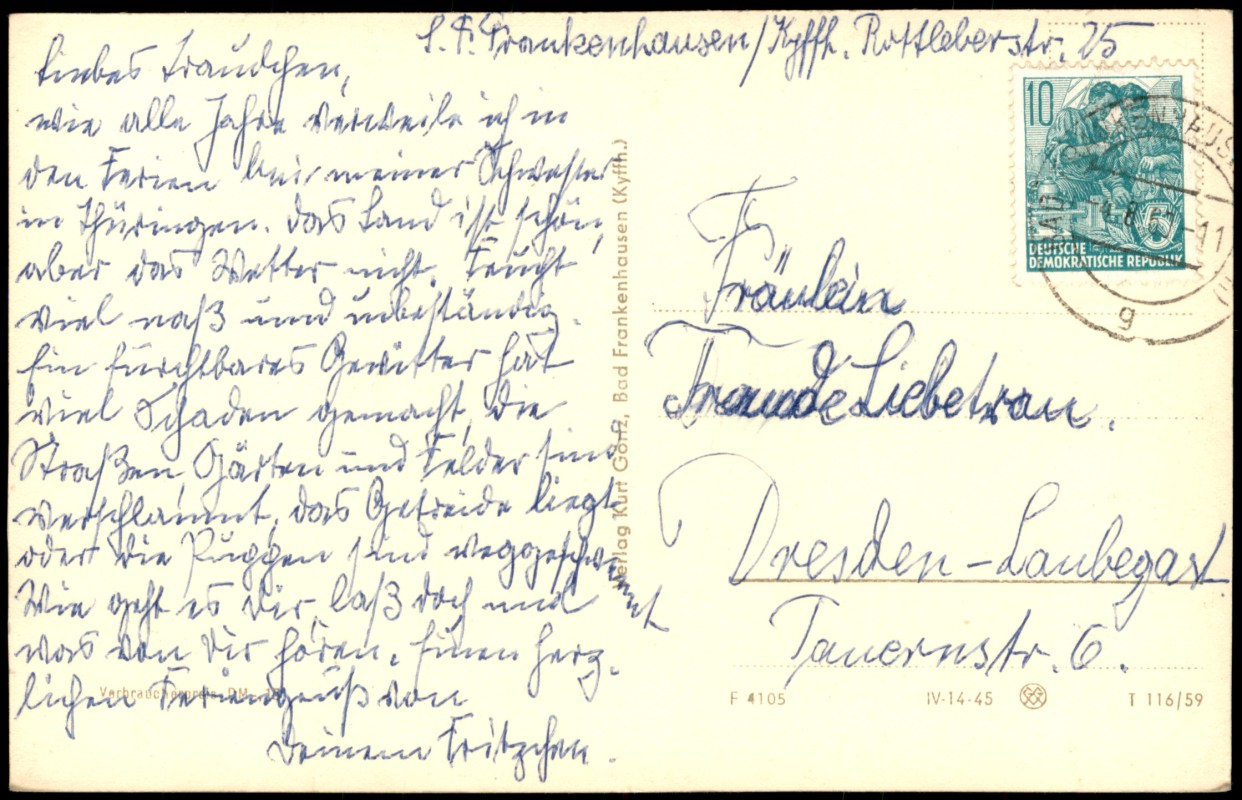 Frankenhausen/Kyffh. Rottleberstr. 25
Liebes Traudchen,
wie alle Jahre verweile ich in
den Ferien bei meiner Schwester
in Thüringen. Das Land ist schön,
aber das Wetter nicht. Feucht
viel naß und unbeständig.
Ein furchtbares Gewitter hat
viel Schaden gemacht, die
Straßen, Gärten und Felder sind
verschlammt, das Getreide liegt
oder die Puppen sind weggeschwemmt
Wie geht es Dir, laß doch mal
was von Dir hören. Einen herz-
lichen Feriengruß von
Deinem Fritzchen.
Verbraucherpreis DM
Verlag Kurt Göritz, Bad Frankenhausen (Kyffh.)
10
5
DEUTSCHE
DEMOKRATISCHE REPUBLIK
BAD FRANKENHAUSEN
g
Fräulein
Traude Liebetrau.
Dresden-Laubegast
Tauernstr. 6.
F 4105
IV-14-45
T 116/59